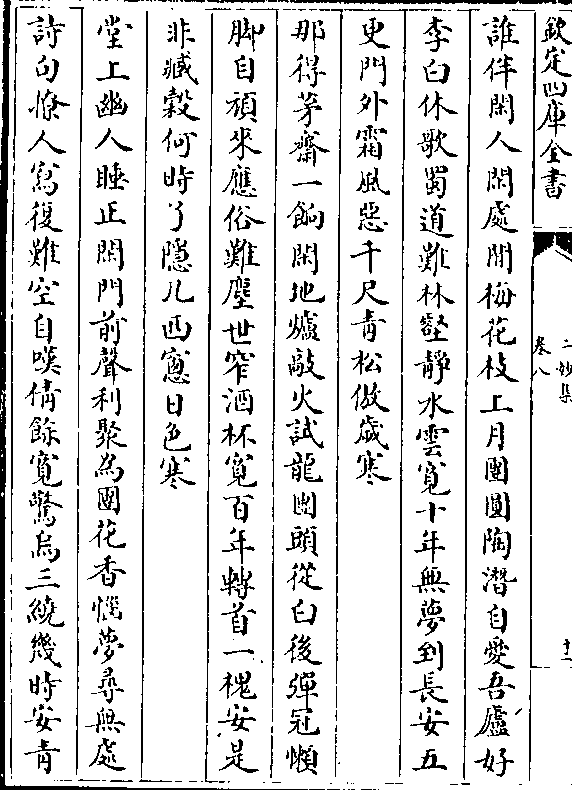 欽定四庫全書
二妙集
卷八
十一
誰伴閑人閑處閒梅花枝上月團圓陶潛自愛吾廬好
李白休歌蜀道難林壑靜水雲寬十年無夢到長安五
更門外霜風惡千尺青松傲歲寒
那得茅齋一餉閑地爐敲火試龍團頭從白後彈冠懶
脚自頑來應俗難塵世窄酒杯寛百年轉首一槐安是
非臧穀何時了隱几西窓日色寒
堂上幽人睡正閑門前聲利聚為團花香惱夢尋無處
詩句撩人寫復難空自嘆倩餘寛驚烏三繞幾時安青